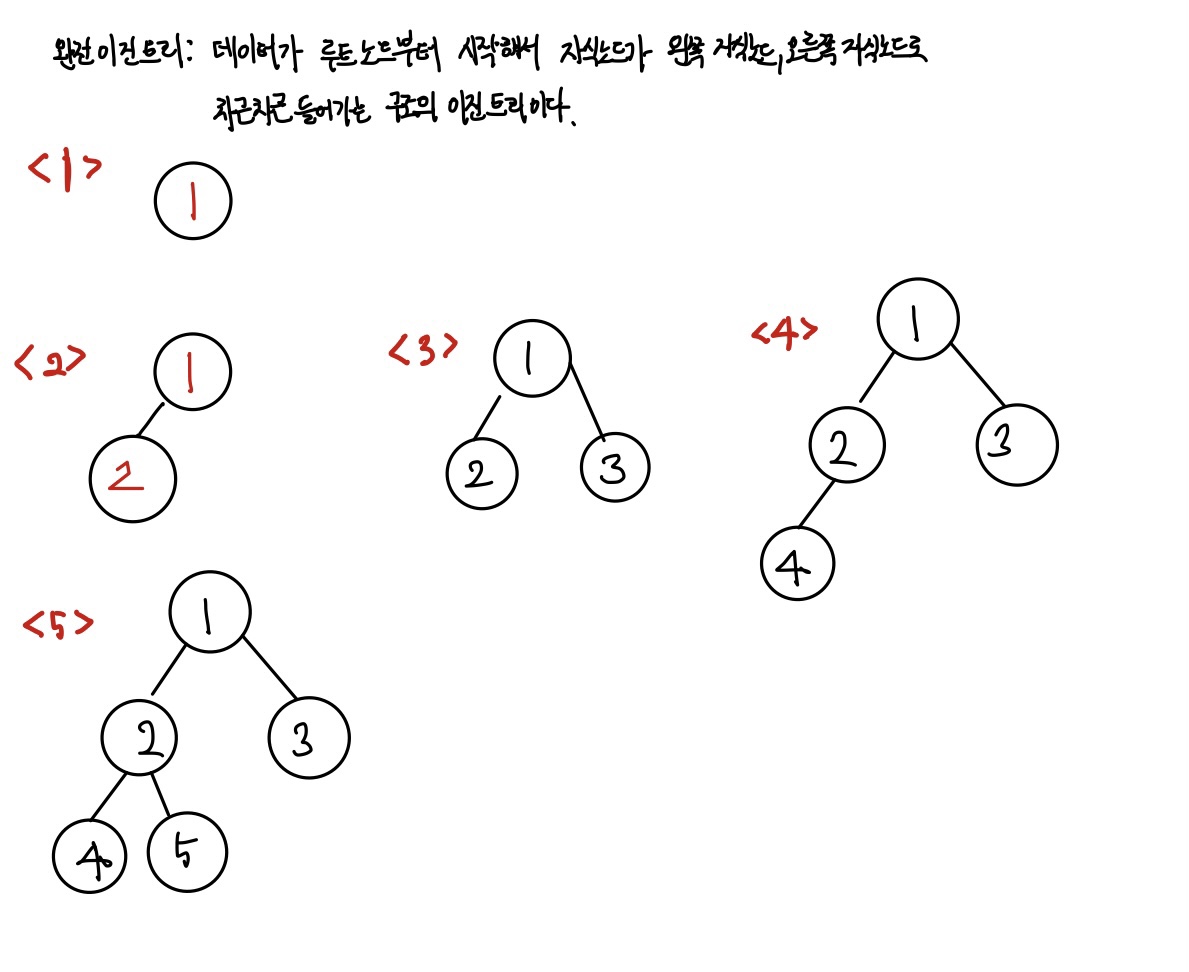 완전이진트리: 데이터가 루트노드부터 시작해서 자식노드가 왼쪽 자식노드, 오른쪽 자식노드로
차근차근 들어가는 구조의 이진트리이다.
<1>
1
<2>
1
2
<3>
1
2 3
<4>
1
2 3
4
<5>
1
2 3
4 5